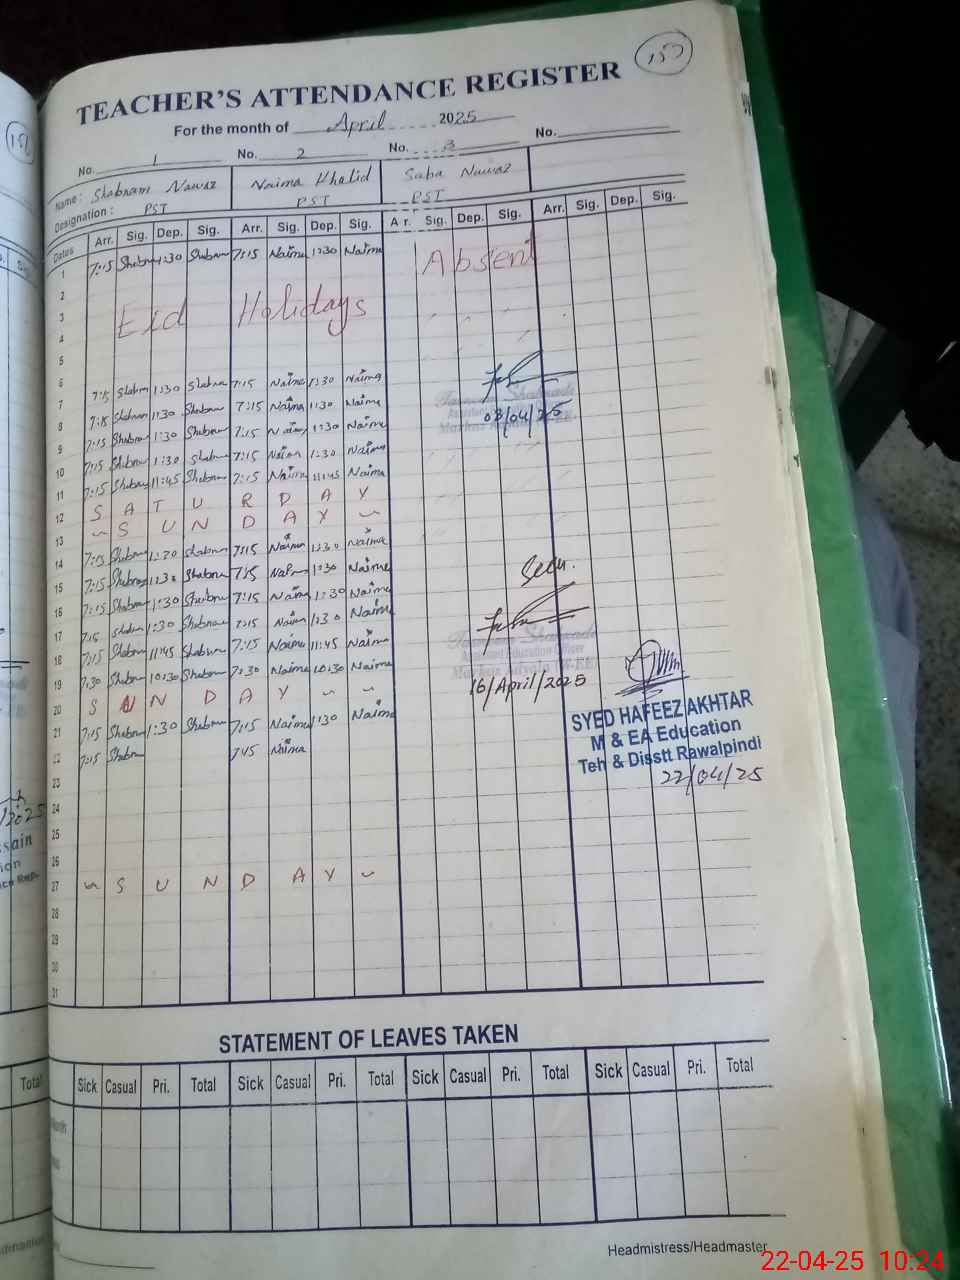 157
TEACHER'S ATTENDANCE REGISTER
For the month of April 2025
No. 1 No. 2 No. 3 No.
Name: Shabnam Nawaz Naima Khalid Saba Nawaz
Designation: PST PST PST
Dates Arr. Sig. Dep. Sig. Arr. Sig. Dep. Sig. Arr. Sig. Dep. Sig. Arr. Sig. Dep. Sig.
1 7:15 Shabnam 1:30 Shabnam 7:15 Naima 1:30 Naima Absent
2
3 Eid Holidays
4
5
6
7 7:15 Shabnam 1:30 Shabnam 7:15 Naima 1:30 Naima
8 7:15 Shabnam 1:30 Shabnam 7:15 Naima 1:30 Naima 08/04/25
9 7:15 Shabnam 1:30 Shabnam 7:15 Naima 1:30 Naima
10 7:15 Shabnam 1:30 Shabnam 7:15 Naima 1:30 Naima
11 7:15 Shabnam 11:45 Shabnam 7:15 Naima 11:45 Naima
12 SATURDAY
13 SUNDAY
14 7:15 Shabnam 1:30 Shabnam 7:15 Naima 1:30 Naima
15 7:15 Shabnam 1:30 Shabnam 7:15 Naima 1:30 Naima
16 7:15 Shabnam 1:30 Shabnam 7:15 Naima 1:30 Naima Seen.
17 7:15 Shabnam 1:30 Shabnam 7:15 Naima 1:30 Naima
18 7:15 Shabnam 11:45 Shabnam 7:15 Naima 11:45 Naima
19 7:30 Shabnam 10:30 Shabnam 7:30 Naima 10:30 Naima
Assistant Education Officer
16/April/2025
20 SUNDAY
21 7:15 Shabnam 1:30 Shabnam 7:15 Naima 1:30 Naima
22 7:15 Shabnam 7:15 Naima
SYED HAFEEZ AKHTAR
M & EA Education
Teh & Disstt Rawalpindi
22/04/25
23
24
25
26
27 SUNDAY
28
29
30
31
STATEMENT OF LEAVES TAKEN
Sick Casual Pri. Total Sick Casual Pri. Total Sick Casual Pri. Total Sick Casual Pri. Total
Headmistress/Headmaster
22-04-25 10:24